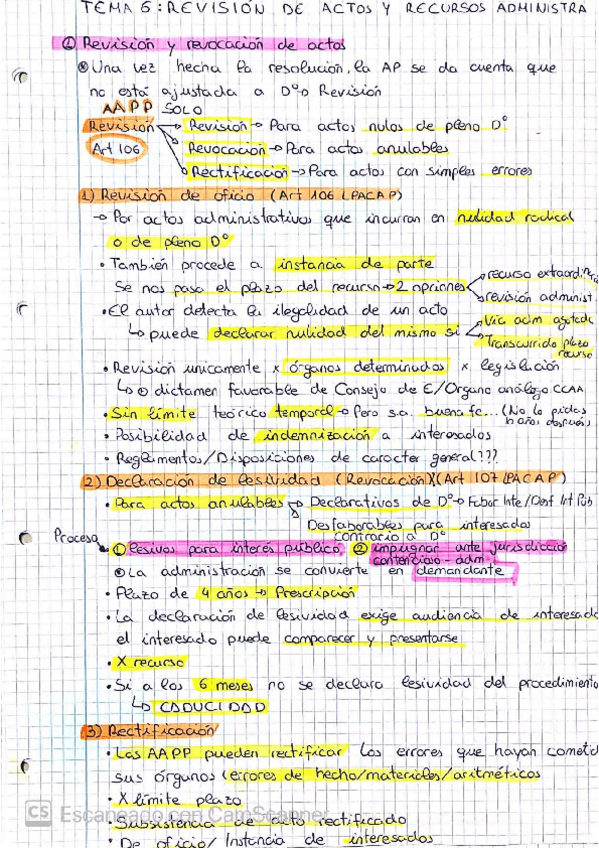 TEMA 6: REVISIÓN DE ACTOS Y RECURSOS ADMINISTRA
① Revisión y revocación de actos
Una vez hecha la resolución, la AP se da cuenta que
no está ajustada a Dº → Revisión
AAPP SOLO
Revisión → Revisión → Para actos nulos de pleno Dº
Art 106 → Revocación → Para actos anulables
→ Rectificación → Para actos con simples errores
1) Revisión de oficio (Art 106 LPACAP)
→ Por actos administrativos que incurran en nulidad radical
o de pleno Dº
• También procede a instancia de parte
Se nos pasa el plazo del recurso → 2 opciones
recurso extraord
revisión administ.
• El autor detecta la ilegalidad de un acto
↳ puede declarar nulidad del mismo si
Vía adm agotada
Transcurrido plazo recurso
• Revisión unicamente x órganos determinados x legislación
↳ dictamen favorable de Consejo de E/Organo análogo CCAA
• Sin límite teórico temporal → Pero s.a. buena fe... (No lo pidas
años después)
• Posibilidad de indemnización a interesados
• Reglamentos/Disposiciones de caracter general???
2) Declaración de lesividad (Revocación) (Art 107 LPACAP)
• Para actos anulables → Declarativos de Dº → Fabor Inte/Desf Int Pub
Desfaborables para interesados
contrario a Dº
Proceso
① lesivos para interés público ② impugnar ante jurisdicció
contencioso-adm
La administración se convierte en demandante
• Plazo de 4 años → Prescripción
• La declaración de lesividad exige audiencia de interesado
el interesado puede comparecer y presentarse
• X recurso
• Si a los 6 meses no se declara lesividad del procedimiento
↳ CADUCIDAD
3) Rectificación
• Las AAPP pueden rectificar los errores que hayan cometid
sus órganos (errores de hecho/materiales/aritméticos
• X límite plazo
CS Escaneado con CamScanner
• Subsistencia de acto rectificado
• De oficio/Instancia de interesados